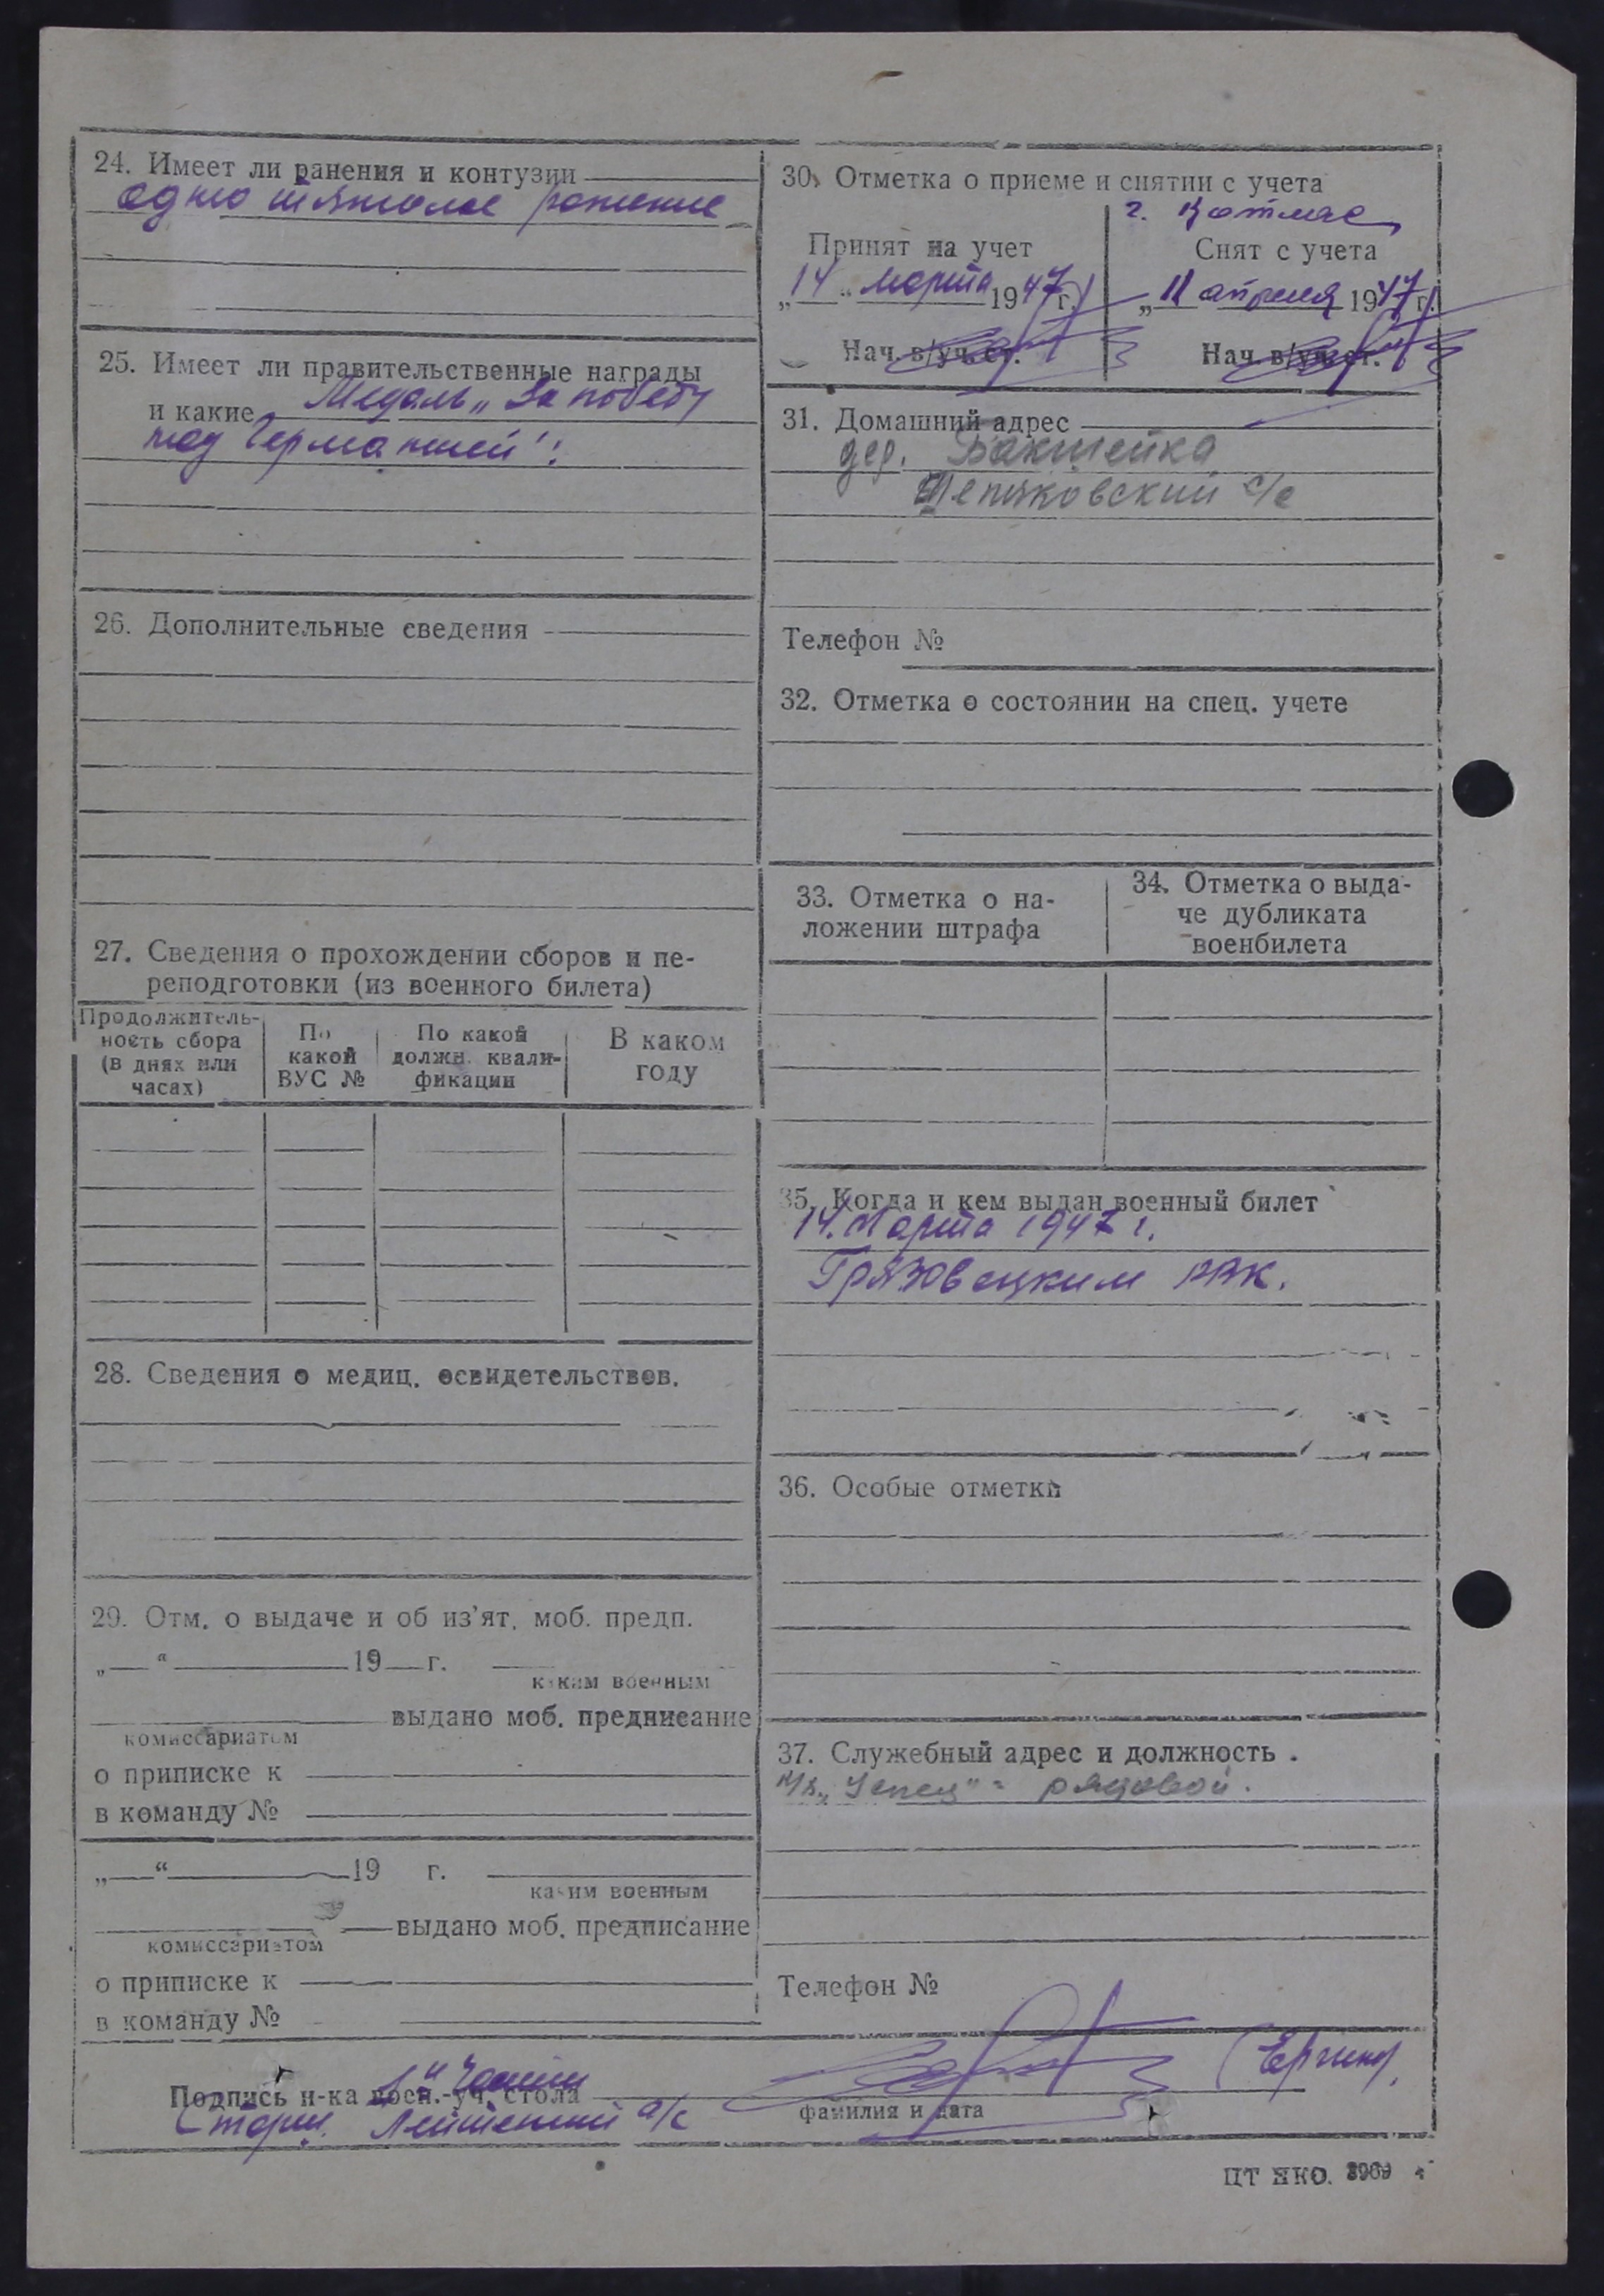 24. Имеет ли ранения и контузии
одно тяжелое ранение
25. Имеет ли правительственные награды
и какие Медаль „За победу
над Германией".
26. Дополнительные сведения
27. Сведения о прохождении сборов и пе-
реподготовки (из военного билета)
Продолжитель-
ность сбора
(в днях или
часах)
По
какой
ВУС №
По какой
должн. квали-
фикации
В каком
году
28. Сведения о медиц. освидетельствов.
29. Отм. о выдаче и об из'ят. моб. предп.
„ “ 19 г.
каким военным
выдано моб. предписание
комиссариатом
о приписке к
в команду №
„ “ 19 г.
каким военным
выдано моб. предписание
комиссариатом
о приписке к
в команду №
30. Отметка о приеме и снятии с учета
г. Котлас
Принят на учет
„14“ марта 1947 г.
Нач. в/уч. ст.
Снят с учета
„11 апреля 1947 г.
Нач. в/уч. ст.
31. Домашний адрес
дер. Бакшейка
с/с
Телефон №
32. Отметка о состоянии на спец. учете
33. Отметка о на-
ложении штрафа
34. Отметка о выда-
че дубликата
военбилета
35. Когда и кем выдан военный билет
14. Марта 1947 г.
Грязовецким РВК.
36. Особые отметки
37. Служебный адрес и должность .
рядовой.
Телефон №
1й части
Подпись н-ка воен.-уч. стола
Старш. Лейтенант а/с
фамилия и дата
ЦТ НКО. 3969